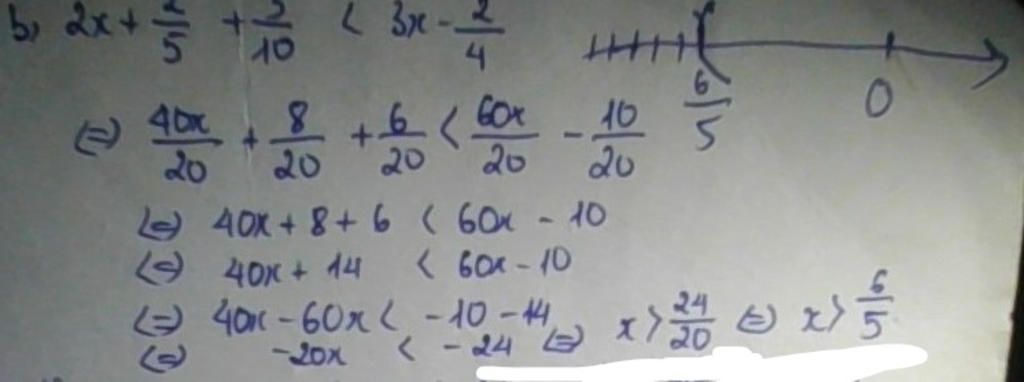 b, 2x + 2/5 + 3/10 < 3x - 2/4
⇔ 40x/20 + 8/20 + 6/20 < 60x/20 - 10/20
⇔ 40x + 8 + 6 < 60x - 10
⇔ 40x + 14 < 60x - 10
⇔ 40x - 60x < -10 - 14
⇔ -20x < -24 ⇔ x > 24/20 ⇔ x > 6/5
6/5 0